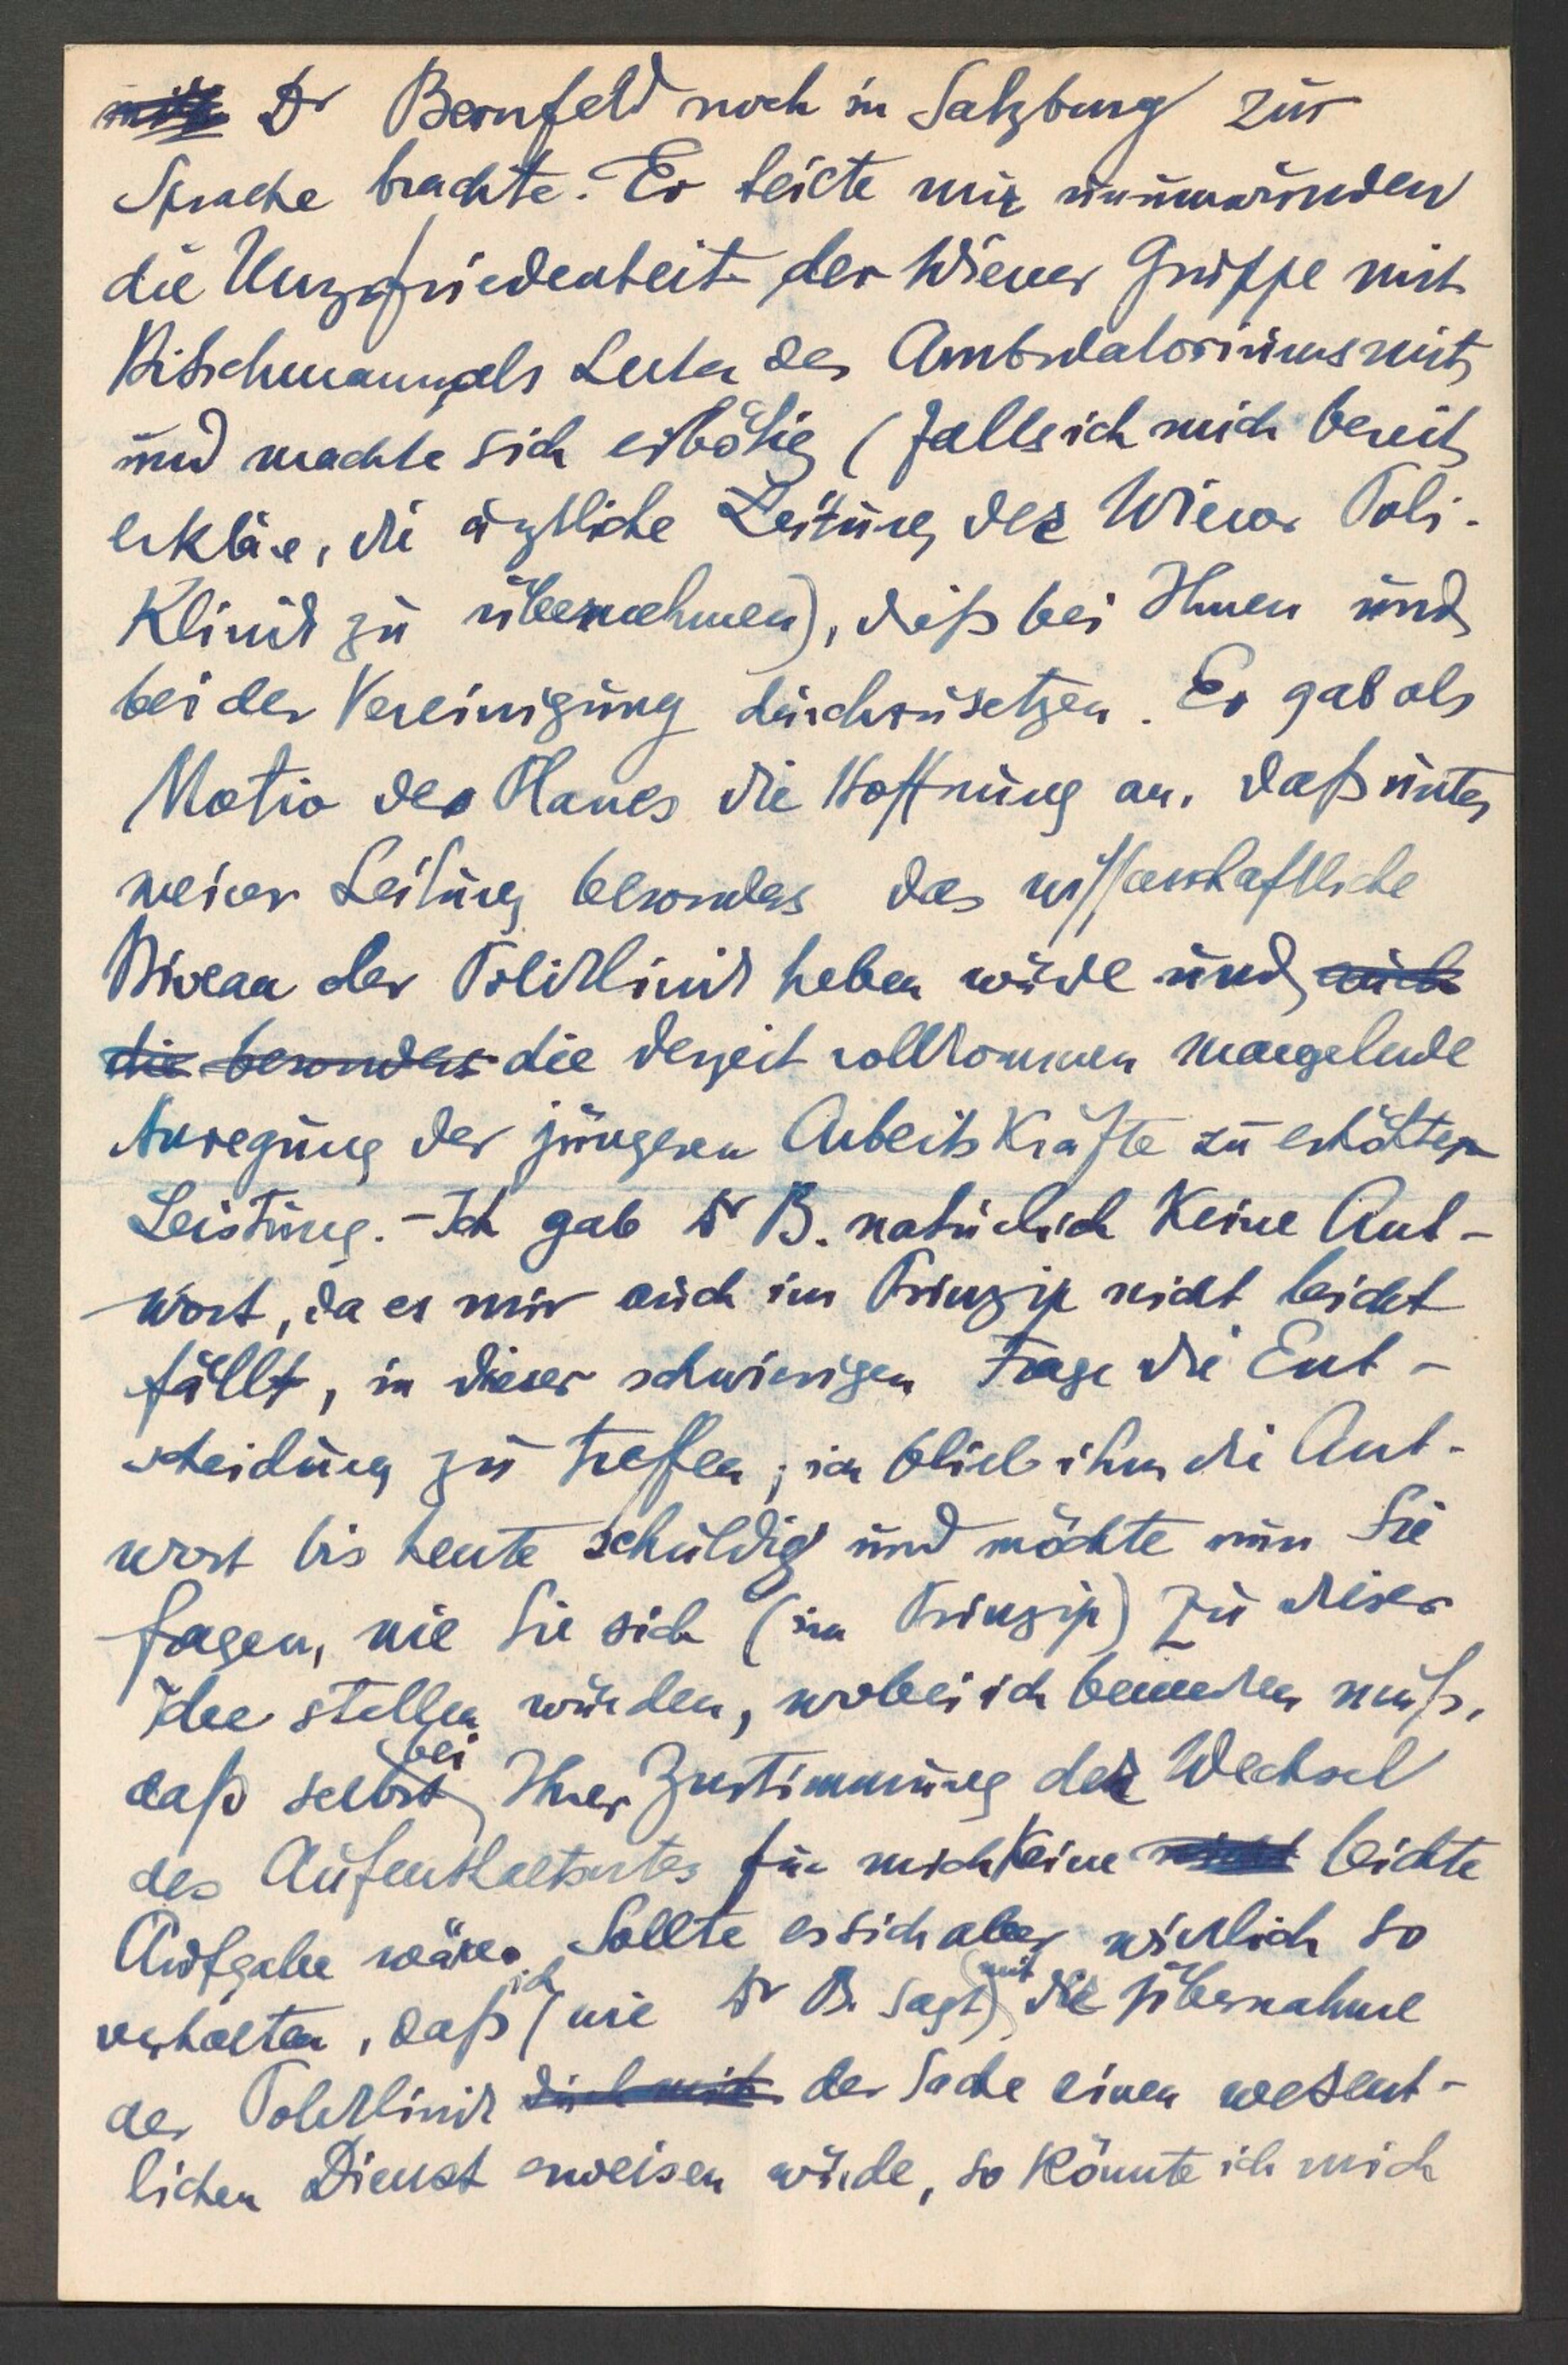 Dr Bernfeld noch in Salzburg zur
Sprache brachte. Er teilte mir unumwunden
die Unzufriedenheit der Wiener Gruppe mit
Hitschmann als Leiter des Ambulatoriums mit,
und machte sich erbötig (falls ich mich bereit
erkläre, die ärztliche Leitung der Wiener Poli-
klinik zu übernehmen), dieß bei Ihnen und
bei der Vereinigung durchzusetzen. Er gab als
Motiv des Planes die Hoffnung an, daß unter
meiner Leitung besonders das wissenschaftliche
Niveau der Poliklinik heben würde und auch
die besonders die derzeit vollkommen mangelnde
Anregung der jüngeren Arbeitskräfte zu erhöhter
Leistung. – Ich gab Dr B. natürlich keine Ant-
wort, da es mir auch im Prinzip nicht leicht
fällt, in dieser schwierigen Frage die Ent-
scheidung zu treffen; ich blieb ihm die Ant-
wort bis heute schuldig und möchte nun Sie
fragen, wie Sie sich (im Prinzip) zu dieser
Idee stellen würden, wobei ich bemerken muß,
daß selbst bei Ihrer Zustimmung der Wechsel
des Aufenthaltsortes für mich keine nicht leichte
Aufgabe wäre. Sollte es sich aber wirklich so
verhalten, daß ich (wie Dr B. sagt) mit die Übernahme
der Poliklinik der Sache einen wesent-
lichen Dienst erweisen würde, so könnte ich mich